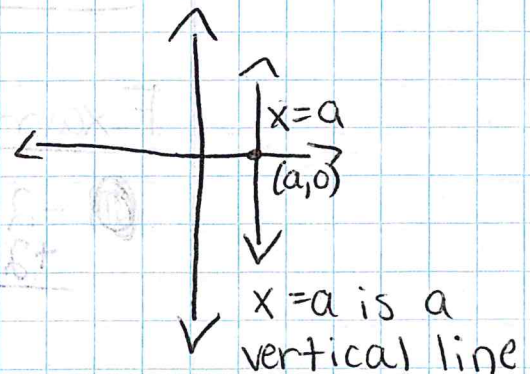 x=a
(a,0)
x=a is a
vertical line